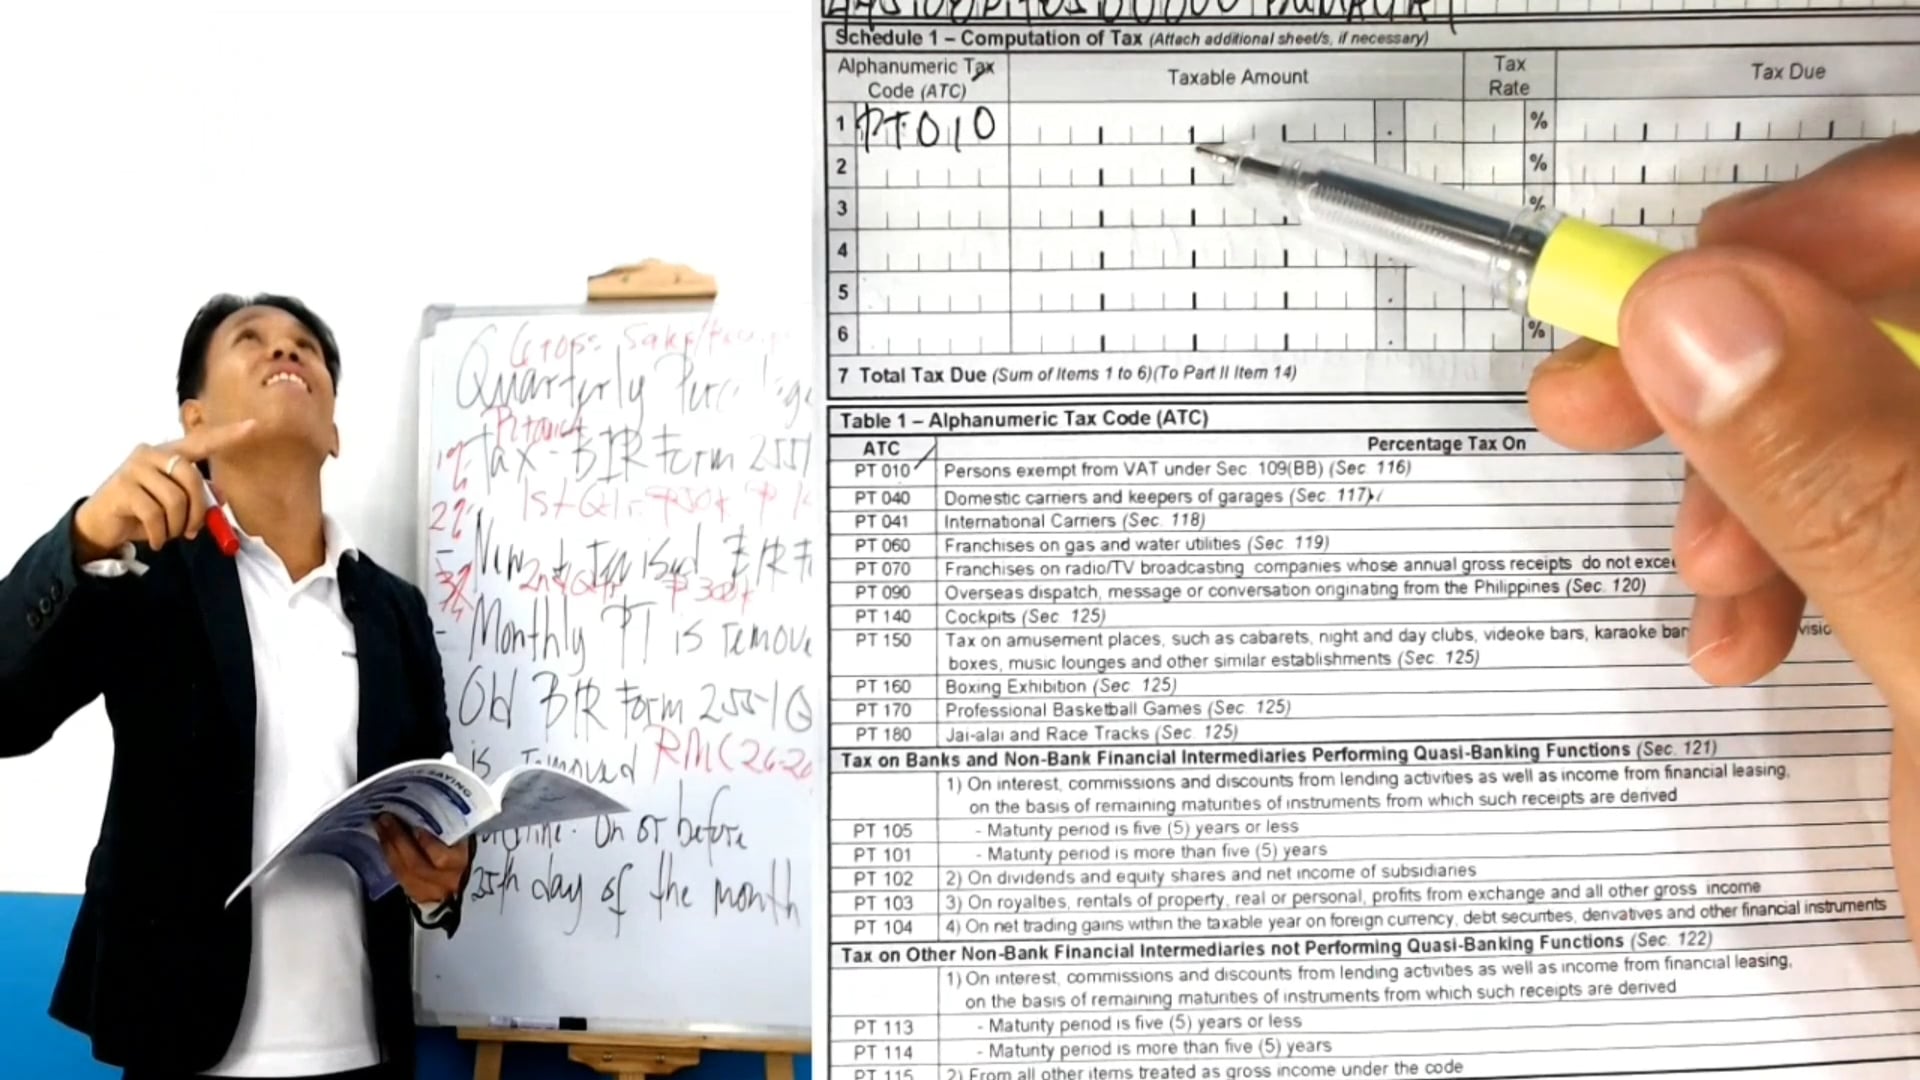 Gross Sales/
Quarterly
Tax - BIR Form 2551
1%
1st Qtr -
2%
- New
BIR F
2nd Qtr
3%
- Monthly PT is remove
Old BIR Form 2551Q
is removed RMC 26-20
On or before
25th day of the month
Schedule 1 – Computation of Tax (Attach additional sheet/s, if necessary)
Alphanumeric Tax Code (ATC) Taxable Amount Tax Rate Tax Due
1 PT010 . %
2 %
3 %
4 .
5 .
6 . %
7 Total Tax Due (Sum of Items 1 to 6)(To Part II Item 14)
Table 1 – Alphanumeric Tax Code (ATC)
ATC Percentage Tax On
PT 010 Persons exempt from VAT under Sec. 109(BB) (Sec. 116)
PT 040 Domestic carriers and keepers of garages (Sec. 117)
PT 041 International Carriers (Sec. 118)
PT 060 Franchises on gas and water utilities (Sec. 119)
PT 070 Franchises on radio/TV broadcasting companies whose annual gross receipts do not excee
PT 090 Overseas dispatch, message or conversation originating from the Philippines (Sec. 120)
PT 140 Cockpits (Sec. 125)
PT 150 Tax on amusement places, such as cabarets, night and day clubs, videoke bars, karaoke bar
boxes, music lounges and other similar establishments (Sec. 125)
PT 160 Boxing Exhibition (Sec. 125)
PT 170 Professional Basketball Games (Sec. 125)
PT 180 Jai-alai and Race Tracks (Sec. 125)
Tax on Banks and Non-Bank Financial Intermediaries Performing Quasi-Banking Functions (Sec. 121)
1) On interest, commissions and discounts from lending activities as well as income from financial leasing,
on the basis of remaining maturities of instruments from which such receipts are derived
PT 105 - Maturity period is five (5) years or less
PT 101 - Maturity period is more than five (5) years
PT 102 2) On dividends and equity shares and net income of subsidiaries
PT 103 3) On royalties, rentals of property, real or personal, profits from exchange and all other gross income
PT 104 4) On net trading gains within the taxable year on foreign currency, debt securities, derivatives and other financial instruments
Tax on Other Non-Bank Financial Intermediaries not Performing Quasi-Banking Functions (Sec. 122)
1) On interest, commissions and discounts from lending activities as well as income from financial leasing,
on the basis of remaining maturities of instruments from which such receipts are derived
PT 113 - Maturity period is five (5) years or less
PT 114 - Maturity period is more than five (5) years
PT 115 2) From all other items treated as gross income under the code